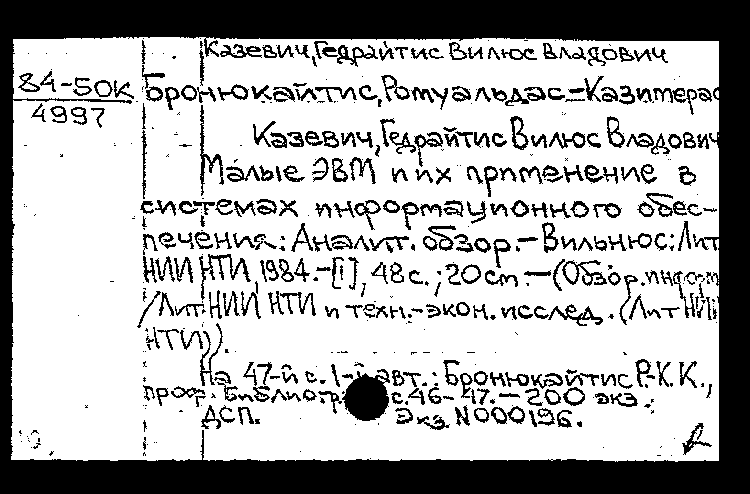 Казевич, Гедрайтис Вилюс Владович
84-50К
4997
Бронюкайтис, Ромуальдас-Казимерас
Казевич, Гедрайтис Вилюс Владович
Малые ЭВМ и их применение в
системах информационного обес-
печения: Аналит. обзор.-Вильнюс: Лит
НИИ НТИ, 1984.-[1], 48 с.; 20 см.-(Обзор. информ
/Лит НИИ НТИ и техн.-экон. исслед. (Лит НИИ
НТИ)).
На 47-й с. 1-й авт.: Бронюкайтис Р.-К.К.,
проф. Библиогр. с. 46-47.-200 экз.;
ДСП. Экз. N000196.